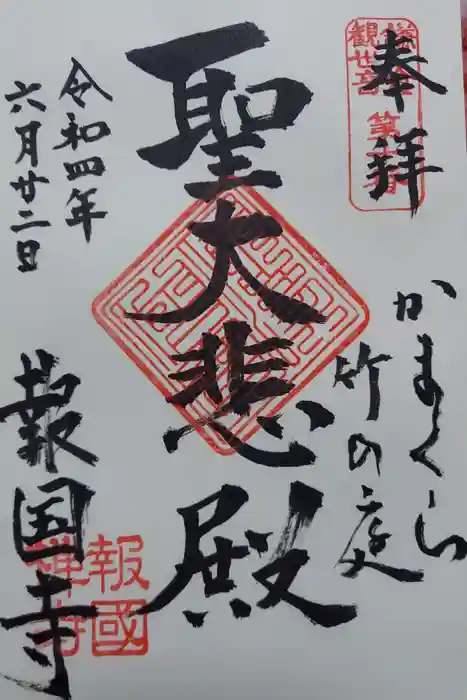 奉拝
かまくら
竹の庭
聖大悲殿
令和四年
六月廿二日
報国寺
報國
禅寺